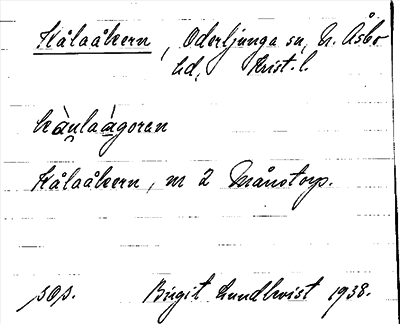 Kålaåkern, Oderljunga sn, N. Åsbo
hd, Krist. l.
kàu̯laágoran
Kålaåkern, m 2 Månstorp.
sop. Birgit Lundkvist 1938.